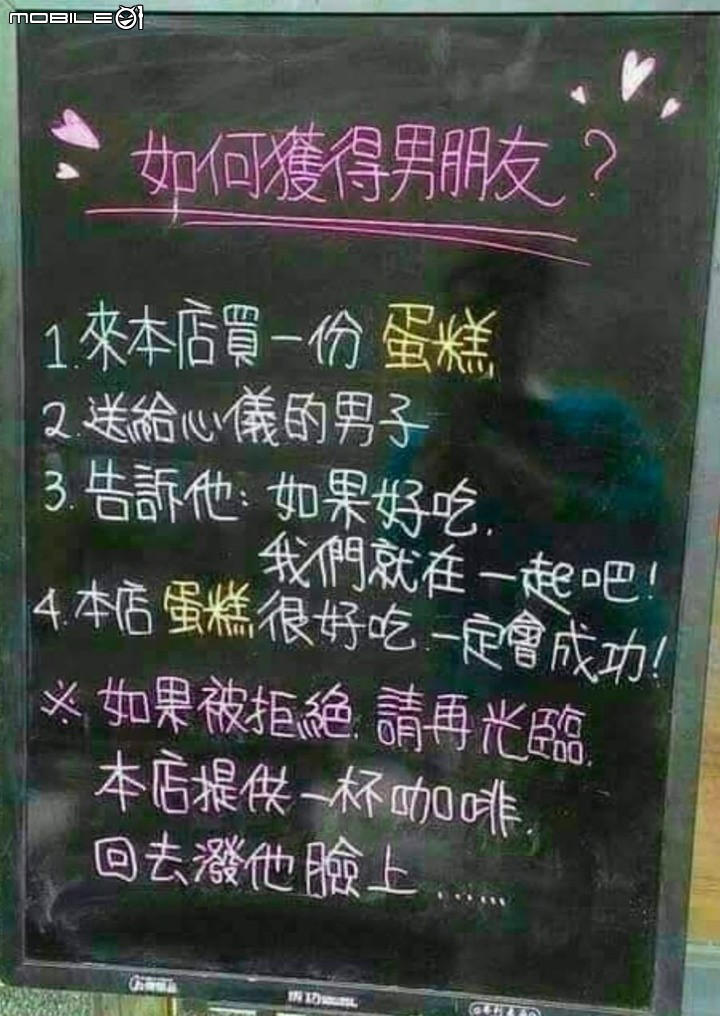 mobile01
如何獲得男朋友？
1.來本店買一份 蛋糕
2.送給心儀的男子
3.告訴他：如果好吃.
我們就在一起吧！
4.本店蛋糕很好吃.一定會成功！
※如果被拒絕.請再光臨.
本店提供一杯咖啡.
回去潑他臉上……